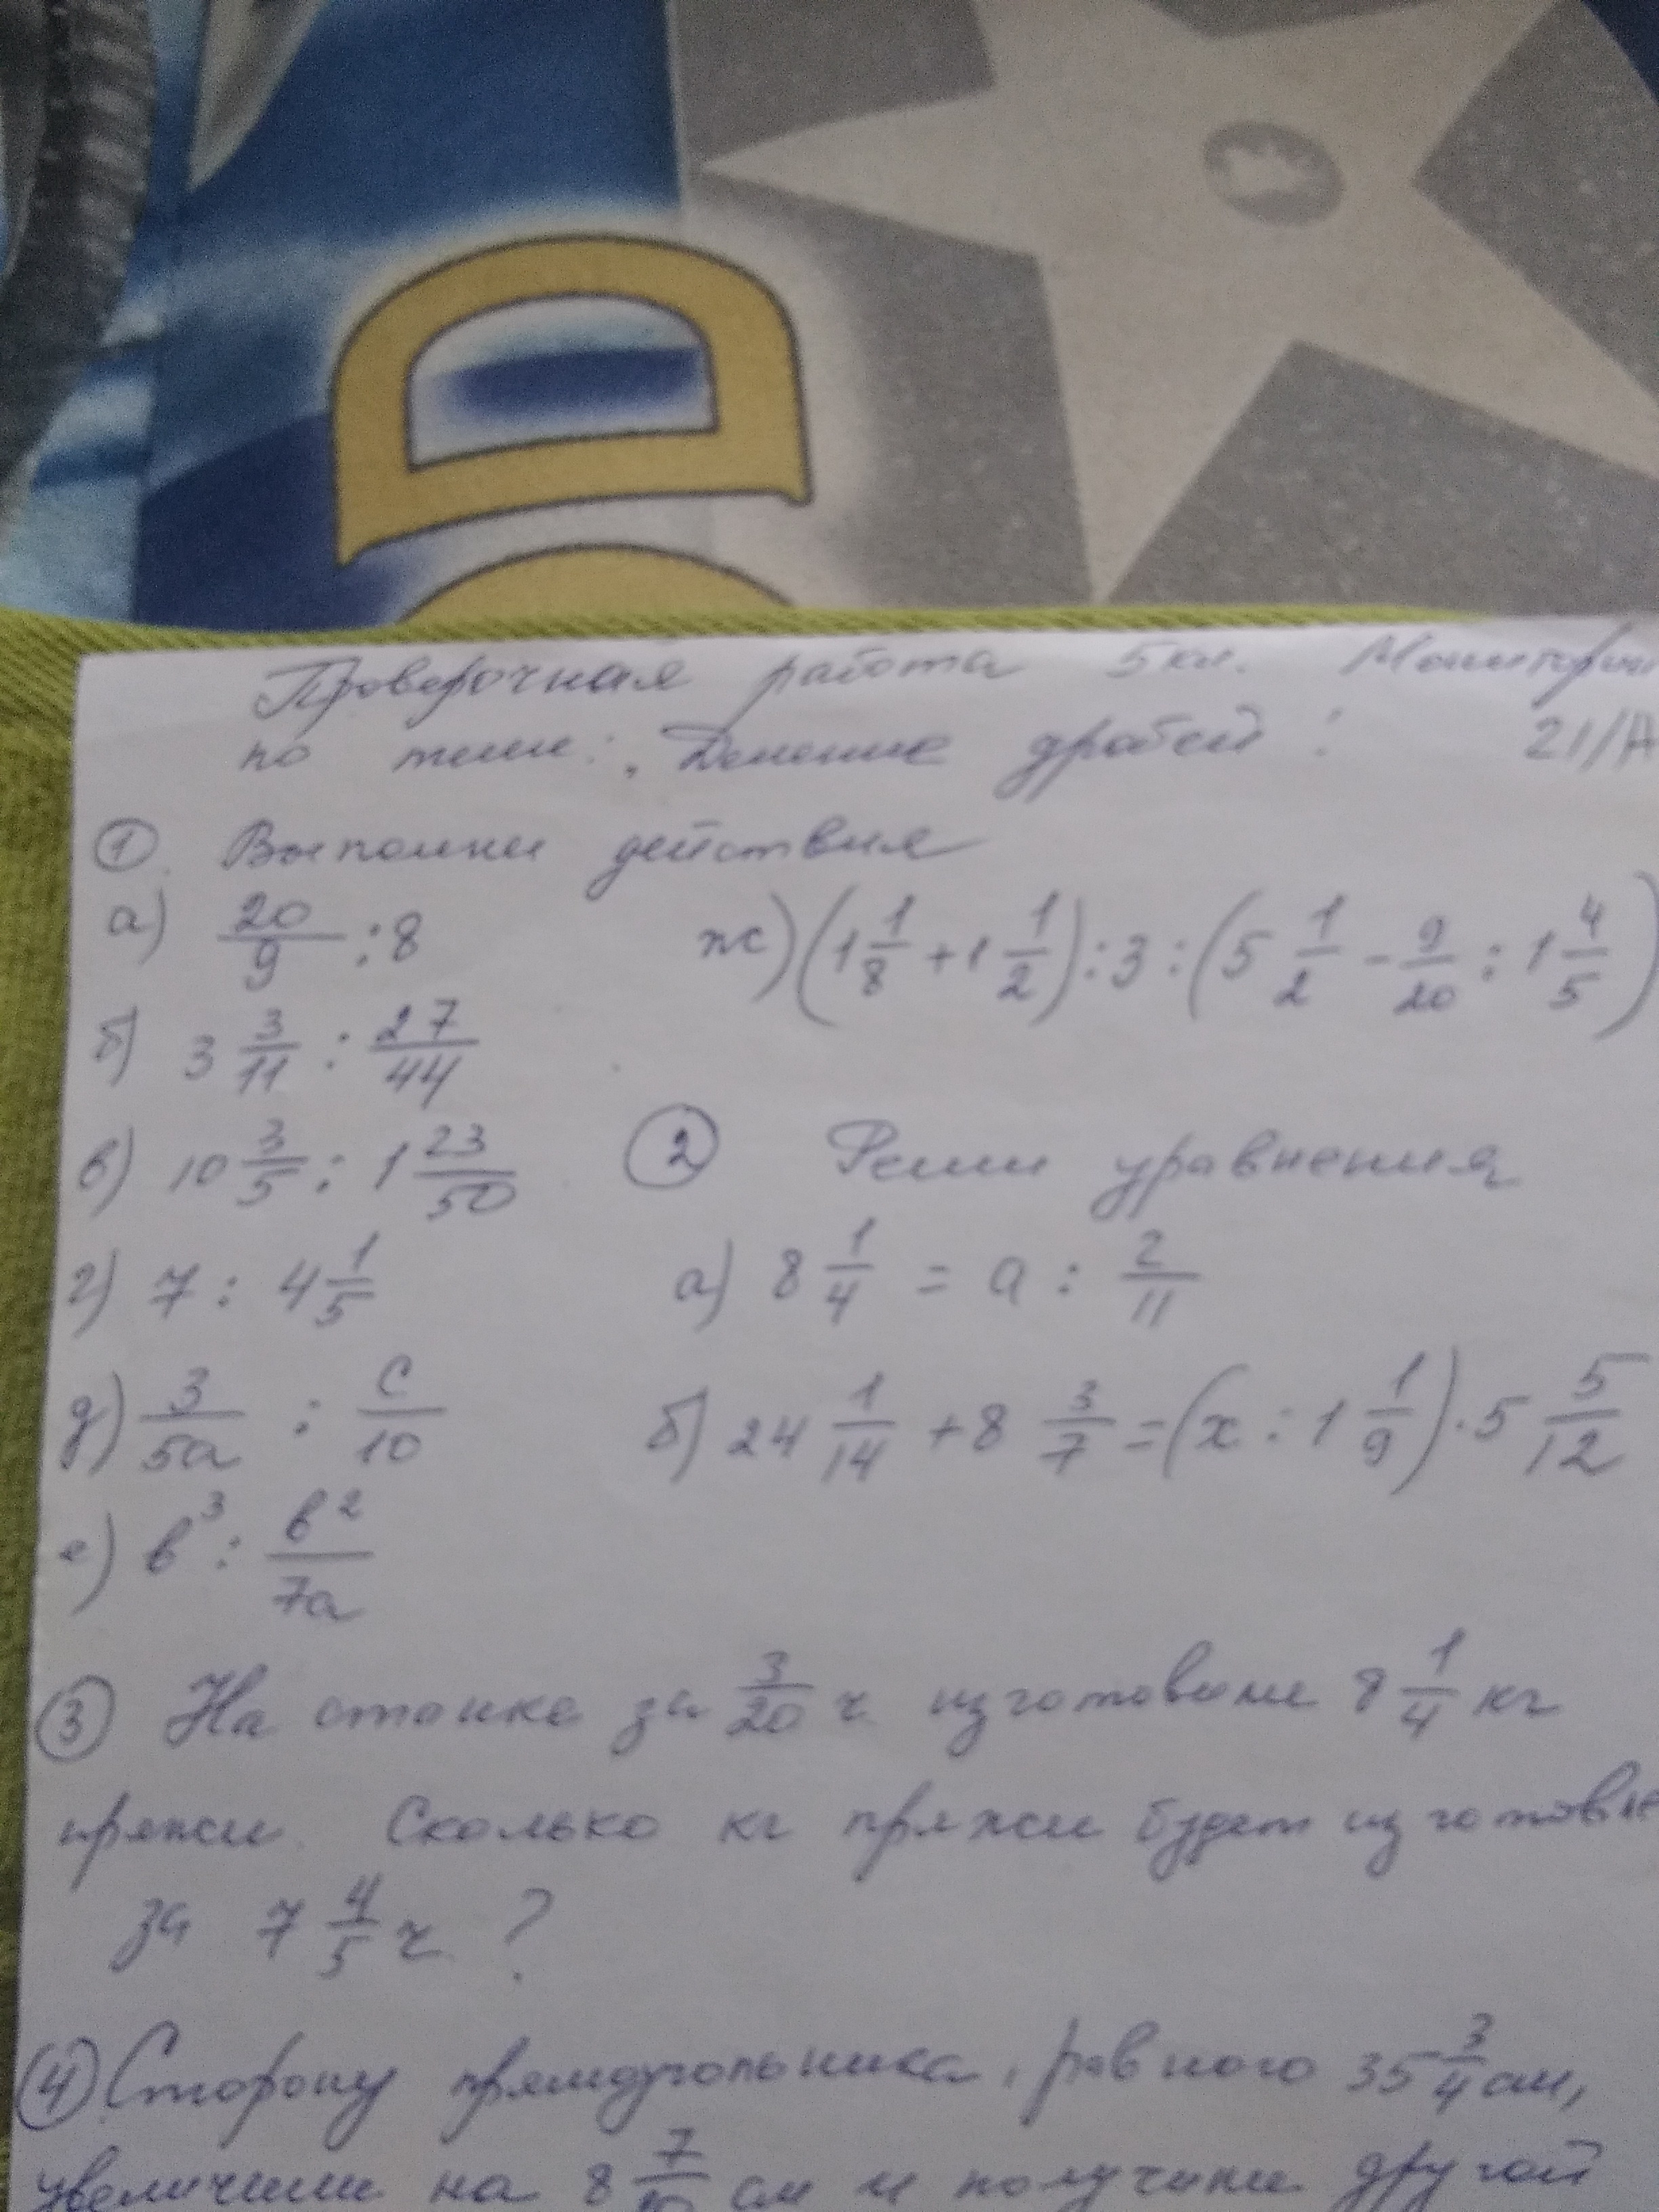 Проверочная работа 5 кл.
по теме: "Деление дробей"
① Выполни действия
а) 20/9 : 8
ж) (1 1/8 + 1 1/2) : 3 : (5 1/2 - 9/20 : 1 4/5)
б) 3 3/11 : 27/44
в) 10 3/5 : 1 23/50
② Реши уравнения
г) 7 : 4 1/5
а) 8 1/4 = a : 2/11
д) 3/5a : c/10
б) 24 1/14 + 8 3/7 = (x : 1 1/9) · 5 5/12
е) b³ : b²/7a
③ На станке за 3/20 ч изготовили 8 1/4 кг
пряжи. Сколько кг пряжи будет
за 7 4/5 ч ?
④ Сторону прямоугольника, равного 35 3/4 см,
увеличили на 8 7/10 см и получили другой